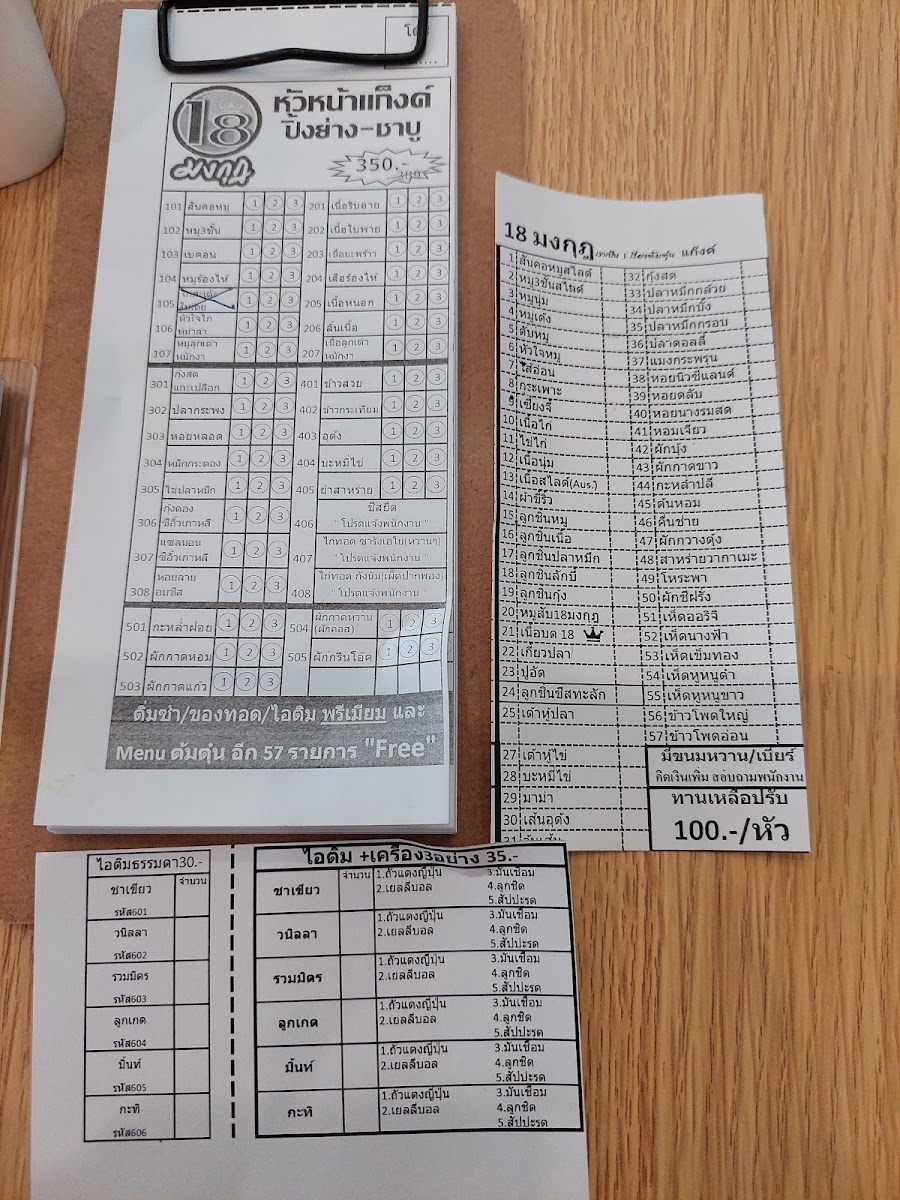 โต๊ะ
18
มงกุฎ
หัวหน้าแก็งค์
ปิ้งย่าง-ชาบู
350.-
389
101 สันคอหมู 1 2 3 201 เนื้อริบอาย 1 2 3
102 หมู3ชั้น 1 2 3 202 เนื้อใบพาย 1 2 3
103 เบคอน 1 2 3 203 เนื้อมะพร้าว 1 2 3
104 หมูร้องไห้ 1 2 3 204 เสือร้องไห้ 1 2 3
105 1 2 3 205 เนื้อหนอก 1 2 3
106 หัวใจไก่หม่าล่า 1 2 3 206 ลิ้นเนื้อ 1 2 3
107 หมูลูกเต๋าหมักงา 1 2 3 207 เนื้อลูกเต๋าหมักงา 1 2 3
301 กุ้งสดแกะเปลือก 1 2 3 401 ข้าวสวย 1 2 3
302 ปลากระพง 1 2 3 402 ข้าวกระเทียม 1 2 3
303 หอยหลอด 1 2 3 403 อุด้ง 1 2 3
304 หมึกกระดอง 1 2 3 404 บะหมี่ไข่ 1 2 3
305 ไข่ปลาหมึก 1 2 3 405 ยำสาหร่าย 1 2 3
306 กุ้งดองซีอิ๊วเกาหลี 1 2 3 406 ชีสยืด " โปรดแจ้งพนักงาน "
307 แซลมอนซีอิ๊วเกาหลี 1 2 3 407 ไก่ทอด ซารังเฮโย(หวานๆ) " โปรดแจ้งพนักงาน "
308 หอยลายอบชีส 1 2 3 408 ไก่ทอด กังนัม(เผ็ดปากพอง) " โปรดแจ้งพนักงาน "
501 กะหล่ำฝอย 1 2 3 504 ผักกาดหวาน (ผักคอส) 1 2 3
502 ผักกาดหอม 1 2 3 505 ผักกรีนโอ๊ค 1 2 3
503 ผักกาดแก้ว 1 2 3
ติ่มซำ/ของทอด/ไอติม พรีเมียม และ
Menu ต้มตุ๋น อีก 57 รายการ "Free"
18 มงกุฎ แก๊งค์
1 สันคอหมูสไลด์ 32 กุ้งสด
2 หมู3ชั้นสไลด์ 33 ปลาหมึกกล้วย
3 หมูนุ่ม 34 ปลาหมึกบั้ง
4 หมูเด้ง 35 ปลาหมึกกรอบ
5 ตับหมู 36 ปลาดอลลี่
6 หัวใจหมู 37 แมงกะพรุน
7 ไส้อ่อน 38 หอยนิวซีแลนด์
8 กระเพาะ 39 หอยตลับ
9 เซี่ยงจี้ 40 หอยนางรมสด
10 เนื้อไก่ 41 หอมเจียว
11 ไข่ไก่ 42 ผักบุ้ง
12 เนื้อนุ่ม 43 ผักกาดขาว
13 เนื้อสไลด์(Aus.) 44 กะหล่ำปลี
14 ผ้าขี้ริ้ว 45 ต้นหอม
15 ลูกชิ้นหมู 46 คื่นช่าย
16 ลูกชิ้นเนื้อ 47 ผักกวางตุ้ง
17 ลูกชิ้นปลาหมึก 48 สาหร่ายวากาเมะ
18 ลูกชิ้นลักบี้ 49 โหระพา
19 ลูกชิ้นกุ้ง 50 ผักชีฝรั่ง
20 หมูสับ18มงกุฎ 51 เห็ดออริจิ
21 เนื้อบด 18 52 เห็ดนางฟ้า
22 เกี๊ยวปลา 53 เห็ดเข็มทอง
23 ปูอัด 54 เห็ดหูหนูดำ
24 ลูกชิ้นชีสทะลัก 55 เห็ดหูหนูขาว
25 เต้าหู้ปลา 56 ข้าวโพดใหญ่
57 ข้าวโพดอ่อน
27 เต้าหู้ไข่ มีขนมหวาน/เบียร์
28 บะหมี่ไข่ คิดเงินเพิ่ม สอบถามพนักงาน
29 มาม่า ทานเหลือปรับ
30 เส้นอุด้ง 100.-/หัว
31 วุ้นเส้น
ไอติมธรรมดา30.-
ชาเขียว จำนวน
รหัส601
วนิลลา
รหัส602
รวมมิตร
รหัส603
ลูกเกด
รหัส604
มิ้นท์
รหัส605
กะทิ
รหัส606
ไอติม +เครื่อง3อย่าง 35.-
ชาเขียว จำนวน 1.ถั่วแดงญี่ปุ่น 3.มันเชื่อม
2.เยลลี่บอล 4.ลูกชิด
5.สัปปะรด
วนิลลา 1.ถั่วแดงญี่ปุ่น 3.มันเชื่อม
2.เยลลี่บอล 4.ลูกชิด
5.สัปปะรด
รวมมิตร 1.ถั่วแดงญี่ปุ่น 3.มันเชื่อม
2.เยลลี่บอล 4.ลูกชิด
5.สัปปะรด
ลูกเกด 1.ถั่วแดงญี่ปุ่น 3.มันเชื่อม
2.เยลลี่บอล 4.ลูกชิด
5.สัปปะรด
มิ้นท์ 1.ถั่วแดงญี่ปุ่น 3.มันเชื่อม
2.เยลลี่บอล 4.ลูกชิด
5.สัปปะรด
กะทิ 1.ถั่วแดงญี่ปุ่น 3.มันเชื่อม
2.เยลลี่บอล 4.ลูกชิด
5.สัปปะรด